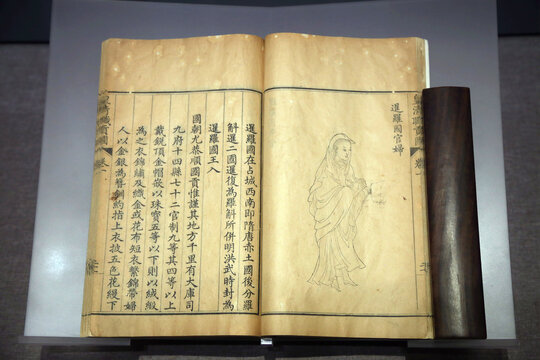 皇清職貢圖 卷一
暹羅國官婦
暹羅國在占城西南即隋唐赤土國後分羅
斛暹二國暹復為羅斛所併明洪武時封為
暹羅國王入
國朝尤恭順國貢惟謹其地方千里有大庫司
九府十四縣七十二官制九等其四等以上
戴銳頂金帽嵌以珠寶五等以下則以絨緞
為之衣錦繡及織金或花布短衣繫錦帶婦
人以金銀為簪釧約指上衣披五色花縵下
皇清職貢圖 卷一